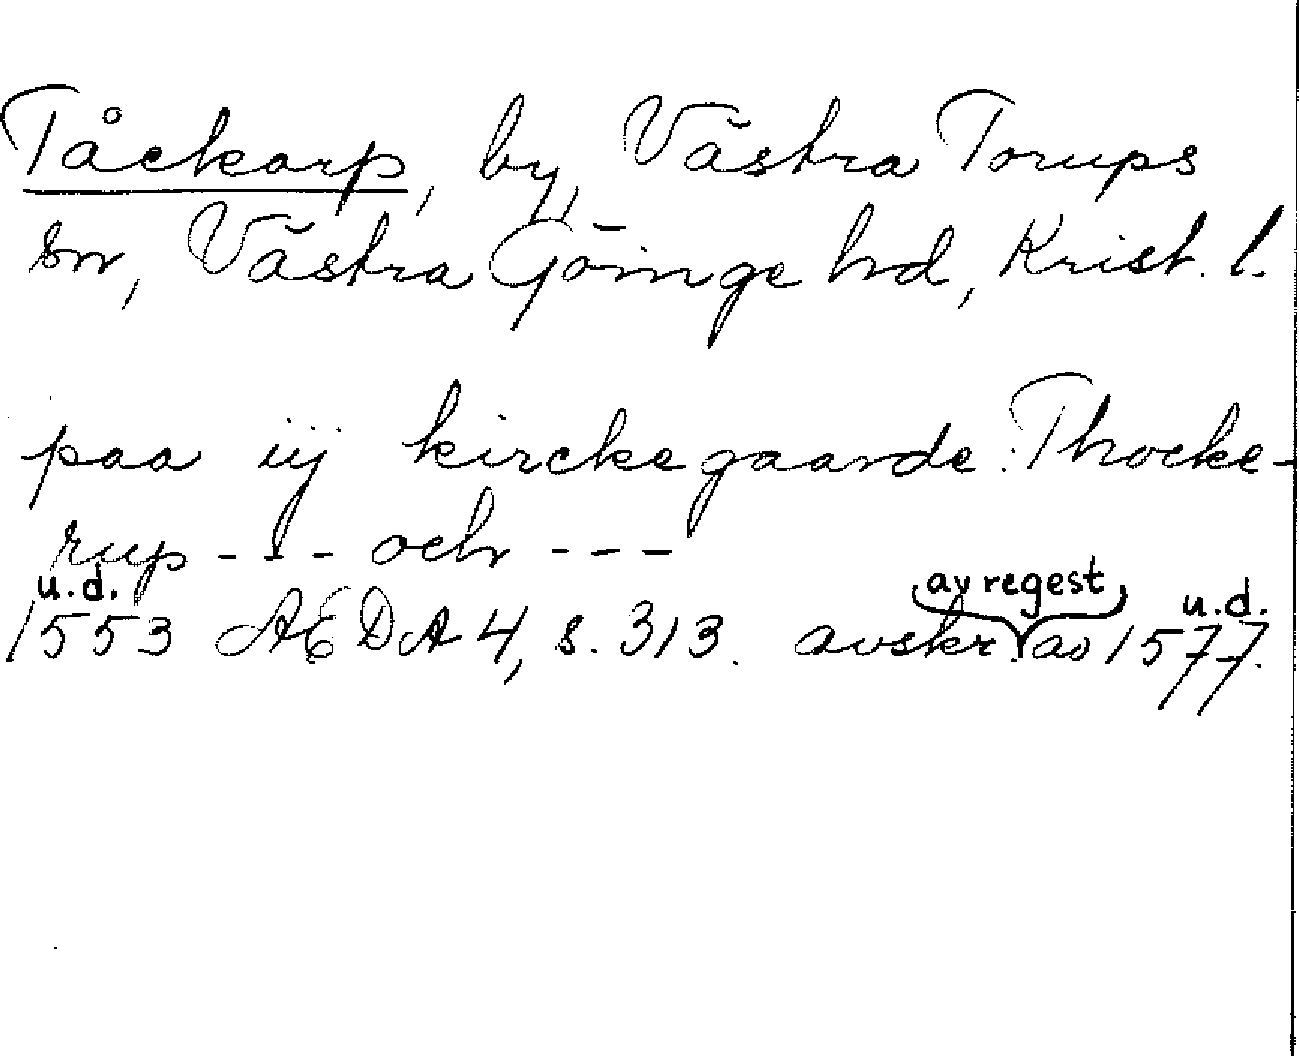 Tåckarp, by, Västra Torups
sn, Västra Göinge hd, Krist. l.
paa iij kirckegaarde: Thocke-
rup - - - och - - -
u.d. av regest u.d.
1553 AEDA 4, s. 313. avskr. av 1577.